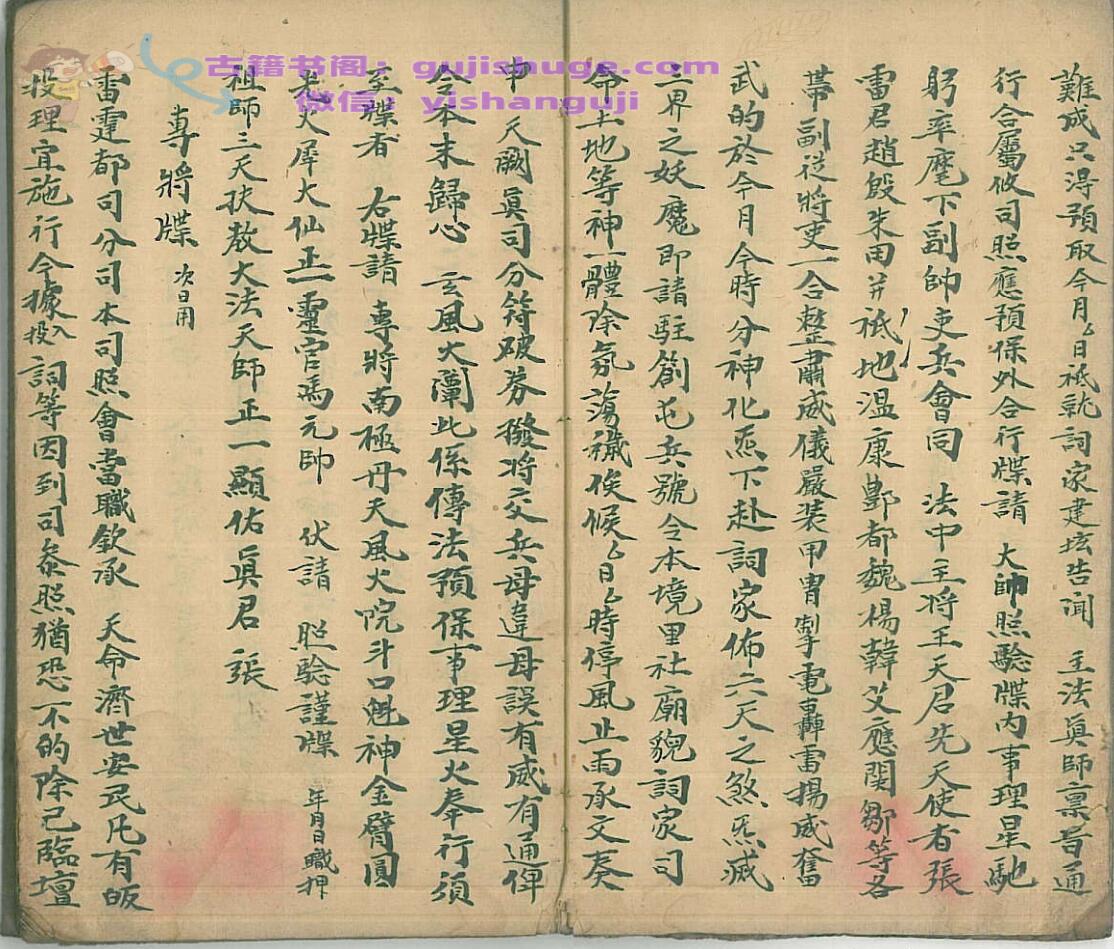 古籍书阁：gujishuge.com
微信：yishanguji
難成只淂預取今月ム日祗就詞家建坛告闻　主法眞師稟旨通
行合屬攸司照應預保外合行牒請　大帥照驗牒内事理星馳
躬率麾下副帥吏兵會同　法中主将王天君先天使者張
雷君趙殷朱周并祗地温康酆都魏楊韓艾應関鄒等各
帯副從将吏一合整肅威儀嚴装甲胄掣電轟雷揚威奮
武的於今月今時分神化炁下赴詞家佈六天之煞炁滅
三界之妖魔即請駐劄屯兵號令本境里社廟貌詞家司
命土地等神一體除氛蕩穢俟候ム日ム時停風止雨承文奏
申　天闕眞司分符破券撥将交兵毋違毋誤有威有通俾
令本末歸心　玄風大闡此係傳法預保事理星火奉行須
至牒者　右牒請　專將南極丹天風火院斗口魁神金臂圓
光火犀大仙正一靈官馮元帥　伏請　照驗謹牒　年月日職押
祖師三天扶教大法天師正一顯佑眞君　張
專將牒　次日用
雷霆都司分司本司照會當職欽承　天命濟世安民凡有皈
投理宜施行今據入投詞等因到司叅照猶恐不的除已臨壇